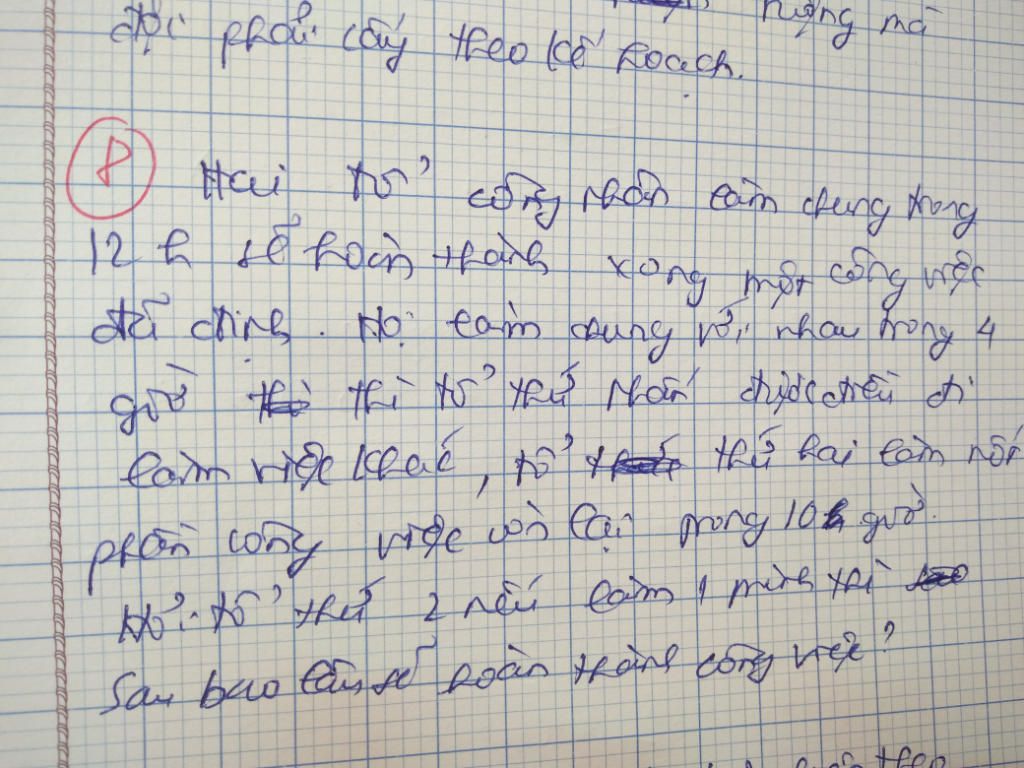 lượng mà
đội phải cấy theo kế hoạch.
8
Hai tổ công nhân làm chung trong
12 h sẽ hoàn thành xong một công việc
đã định. Họ làm chung với nhau trong 4
giờ thì tổ thứ nhất được điều đi
làm việc khác, tổ thứ hai làm nốt
phần công việc còn lại trong 10 giờ.
Hỏi tổ thứ 2 nếu làm 1 mình thì
Sau bao lâu sẽ hoàn thành công việc?
theo